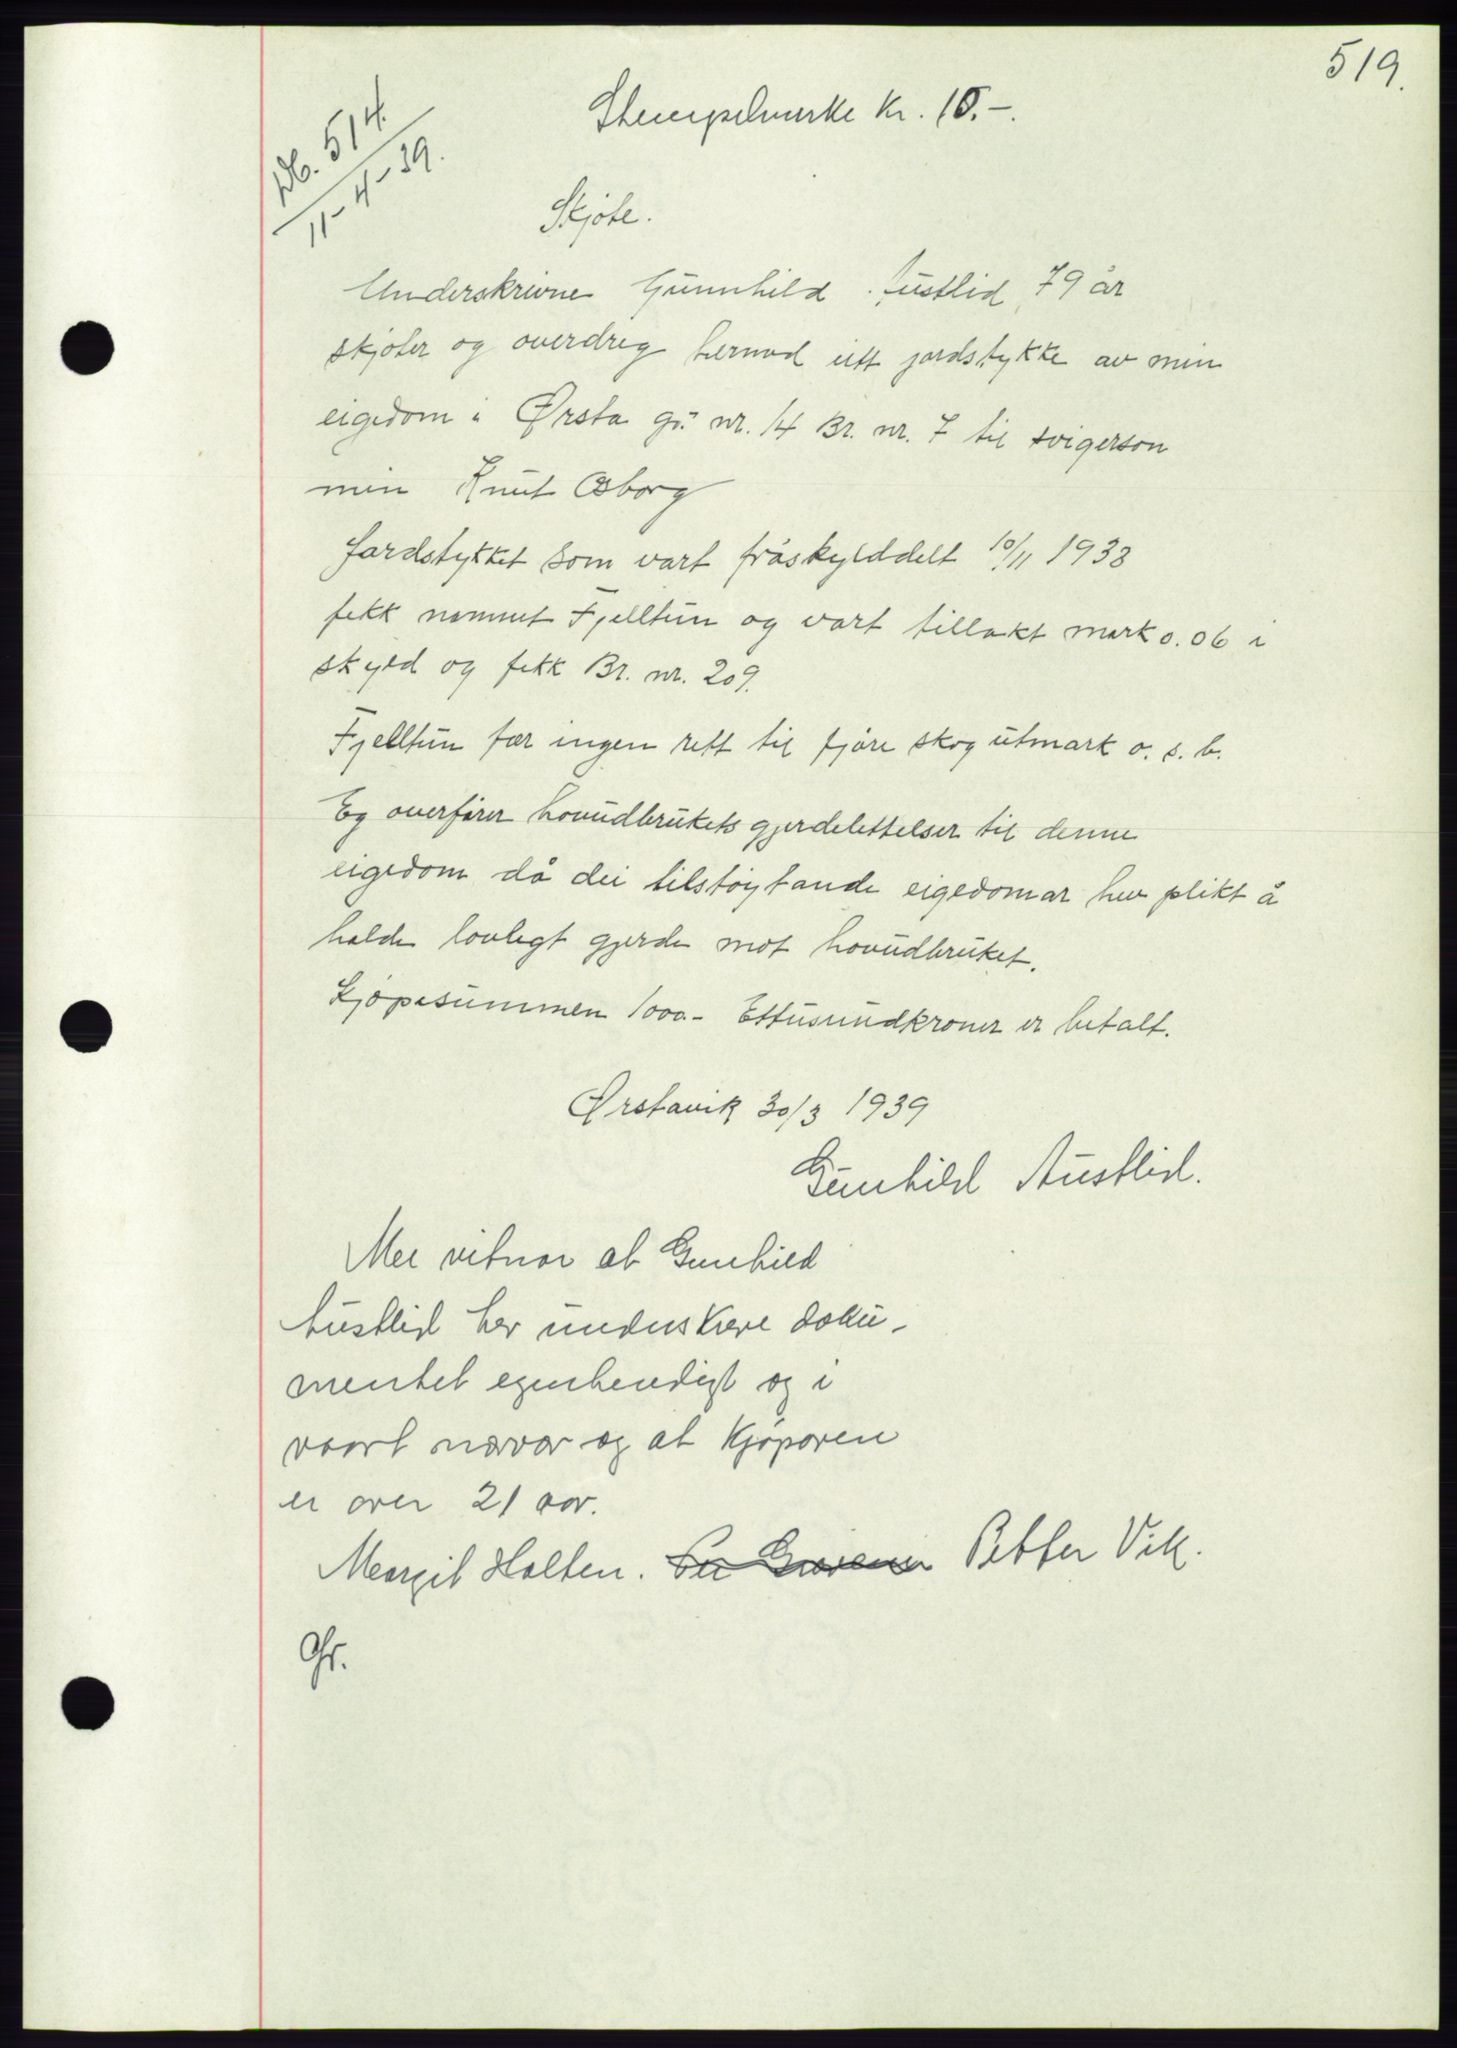 519.
Db. 514.
11-4-39.
Stempelmerke Kr. 10.-.
Skjøte.
Underskrivne Gunnhild Austlid 79 år
skjøter og overdreg hermed eitt jordstykke av min
eigedom i Ørsta gr. nr. 14 Br. nr. 7 til svigerson
min Knut Osborg
Jordstykket som vart fråskylddelt 10/11 1938
fekk namnet Fjelltun og vart tillakt mark 0.06 i
skyld og fekk Br. nr. 209.
Fjelltun fær ingen rett til fjøre skog utmark o. s. b.
Eg overfører hovudbrukets gjerdelettelser til denne
eigedom då dei tilstøytande eigedomar hev plikt å
halde lovlegt gjerde mot hovudbruket.
Kjøpesummen 1000.- Ettusundkroner er betalt.
Ørstavik 30/3 1939
Gunhild Austlid.
Mee vitnar at Gunhild
Austlid hev underskreve doku-
mentet egenhendigt og i
vaart nærvær og at kjøparen
er over 21 aar.
Margit Holten. Petter Vik.
Gr.